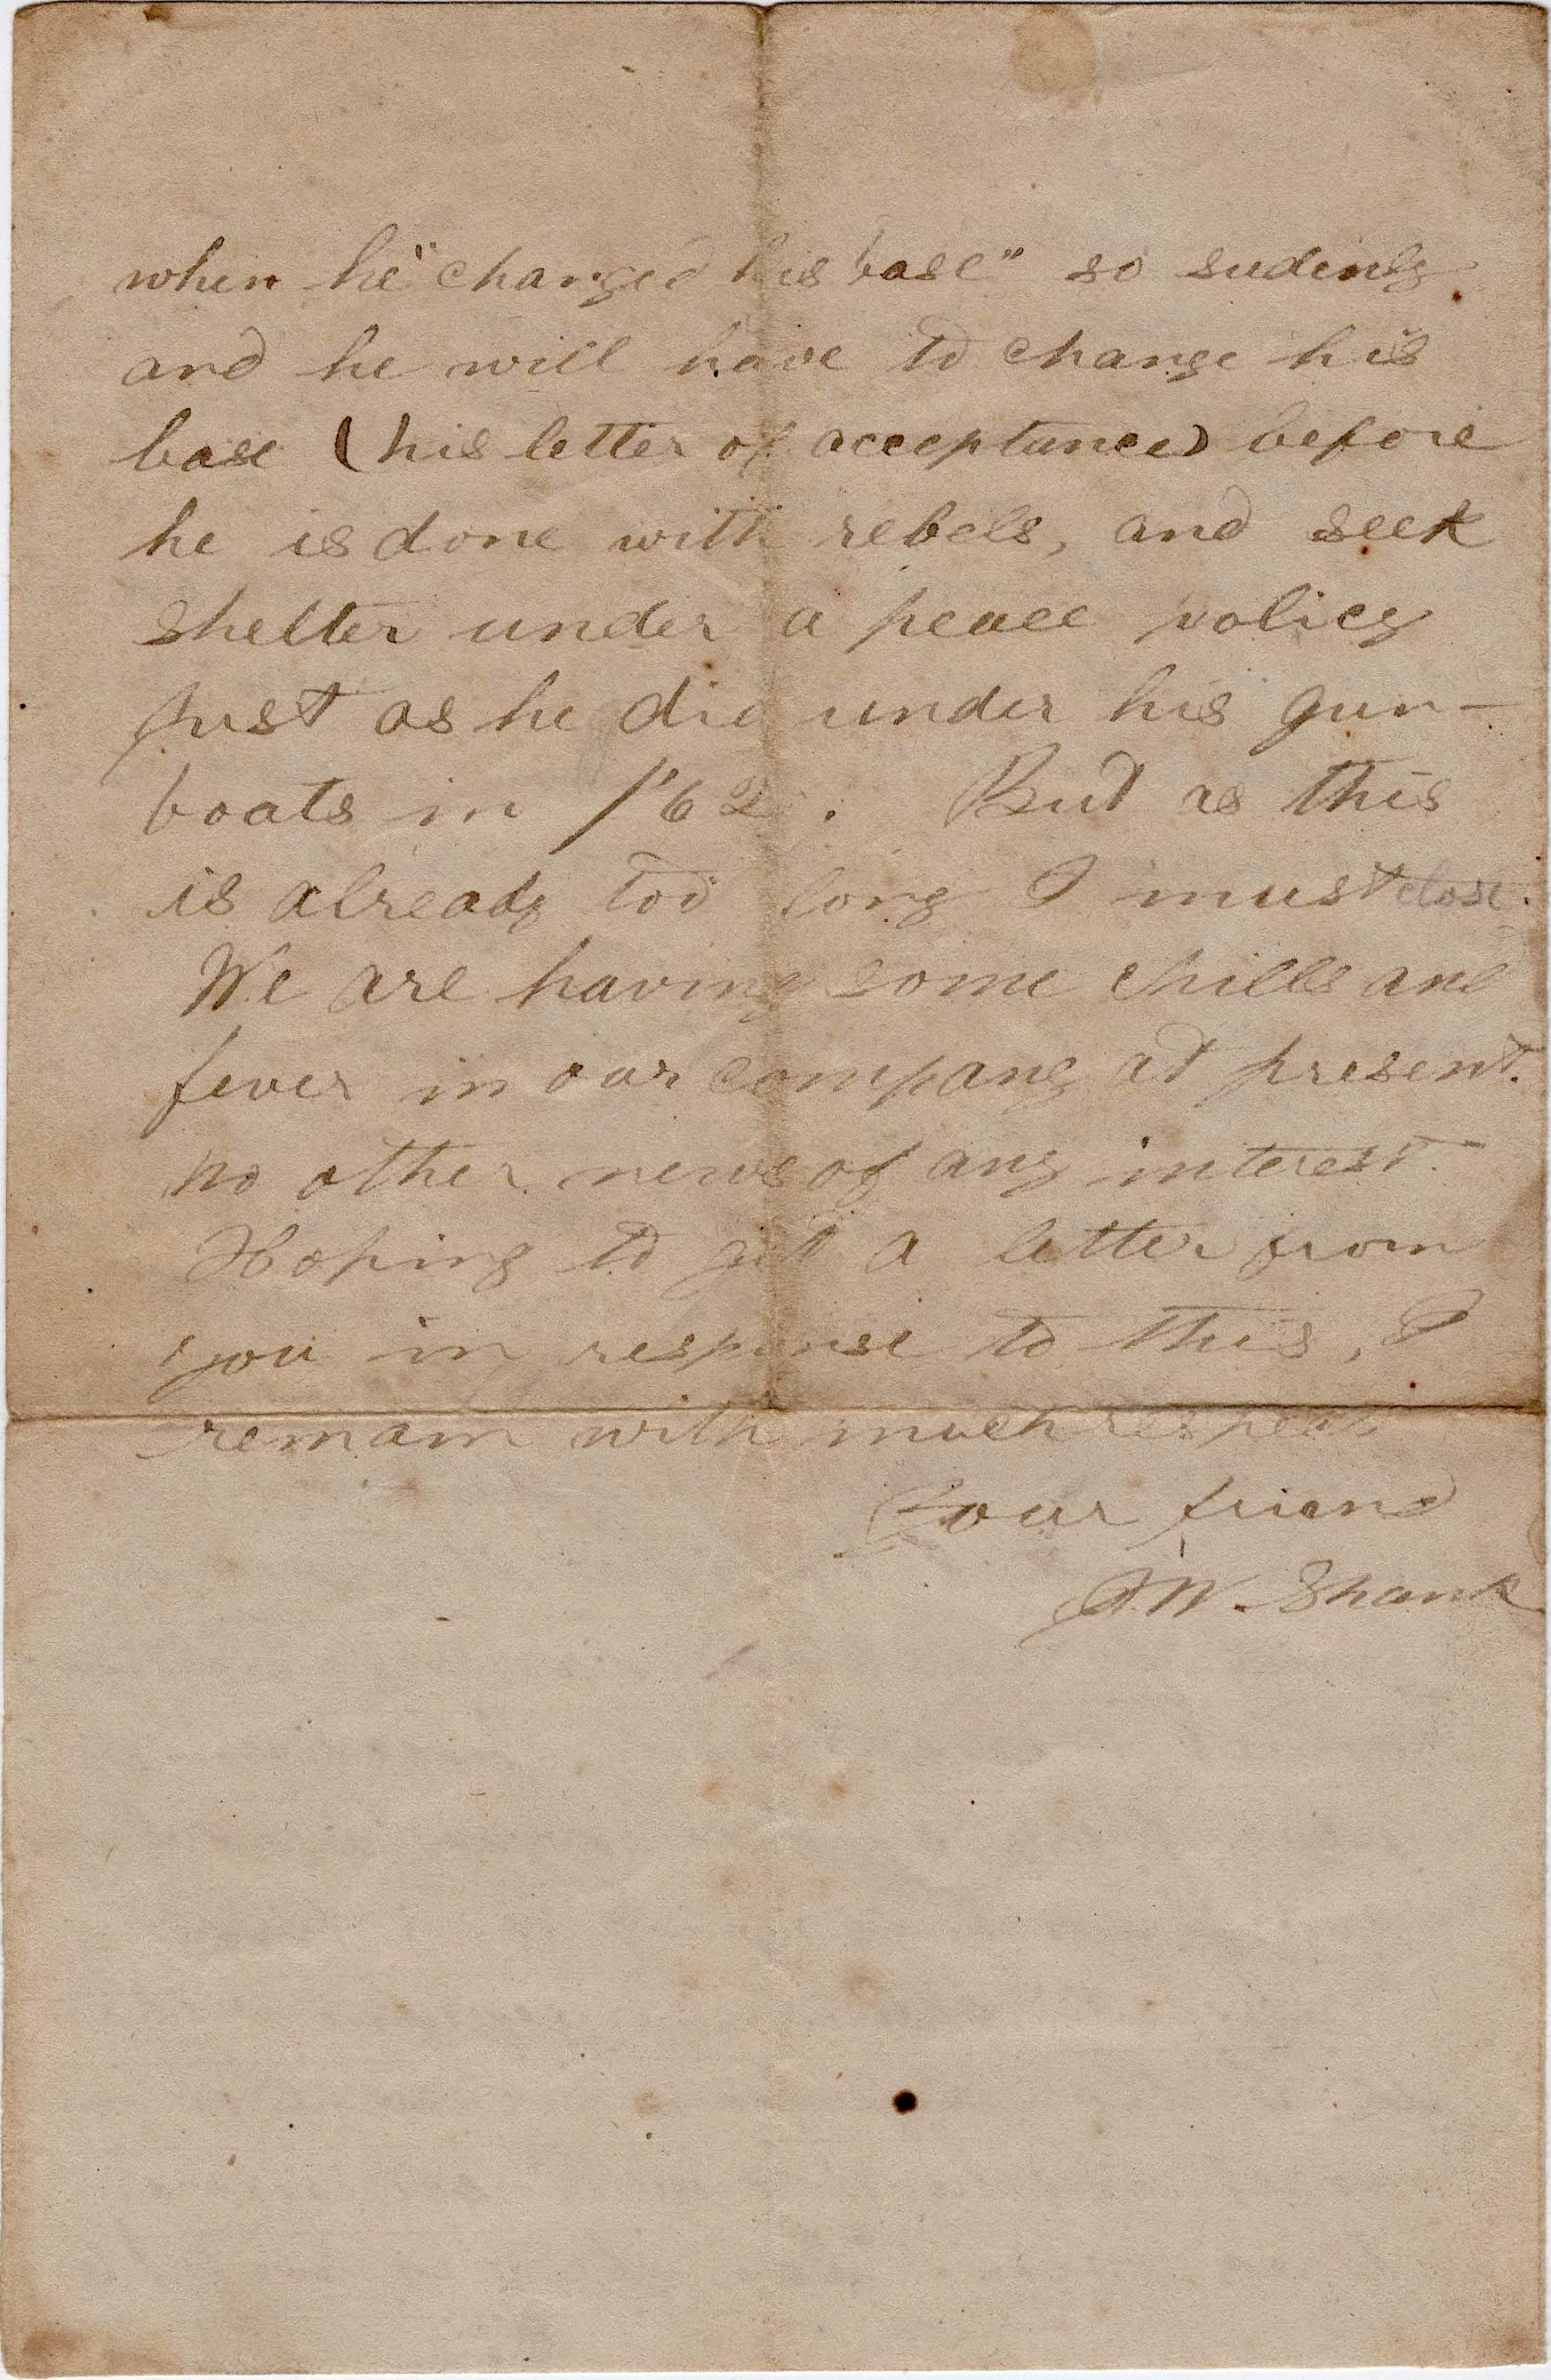 when he "changed his base" so sudenly
and he will have to change his
base (his letter of acceptance) before
he is done with rebels, and seek
shelter under a peace policy
just as he did under his gun-
boats in /'62. But as this
is already too long I must close.
We are having some chills and
fever in our company at present.
no other news of any interest.
Hoping to get a letter from
you in response to this, I
remain with much respect
Your friend
J.W. Shank